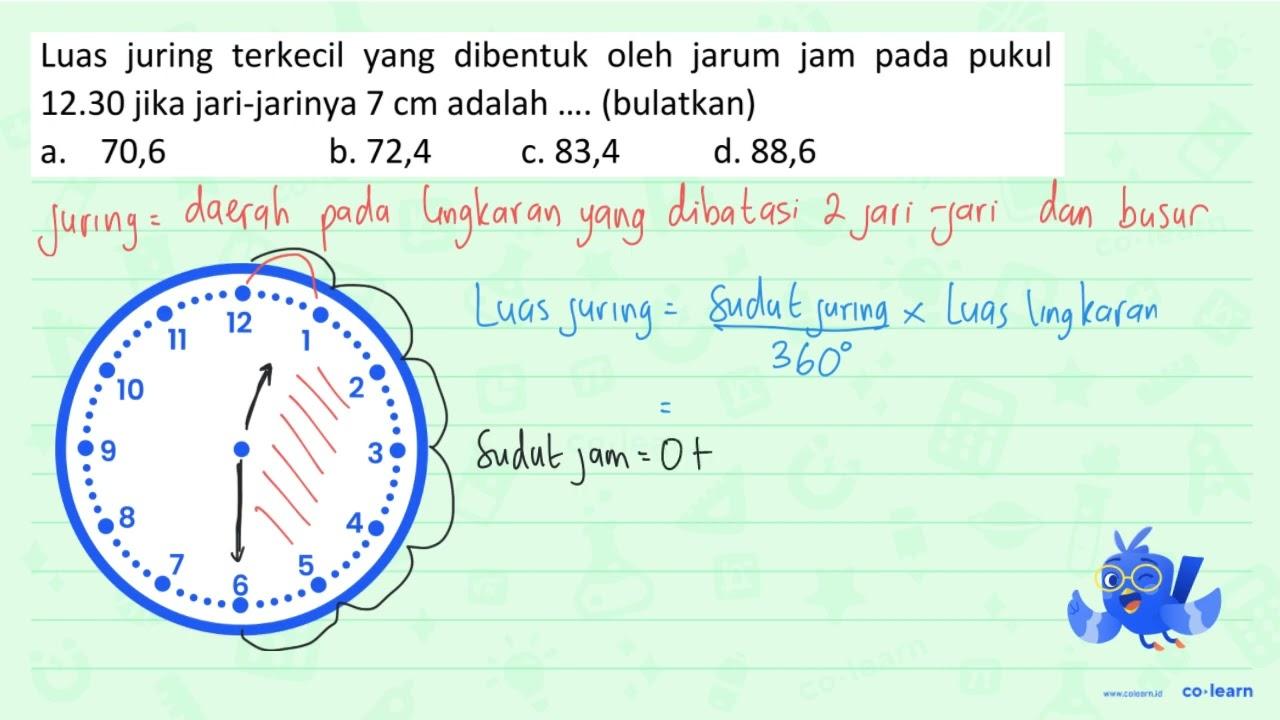 Luas juring terkecil yang dibentuk oleh jarum jam pada pukul
12.30 jika jari-jarinya 7 cm adalah .... (bulatkan)
a. 70,6 b. 72,4 c. 83,4 d. 88,6
Juring = daerah pada lingkaran yang dibatasi 2 jari-jari dan busur
Luas juring = sudut juring × Luas lingkaran
360°
=
Sudut jam = 0 +
12
11
1
10
2
9
3
8
4
7
5
6
www.colearn.id co·learn